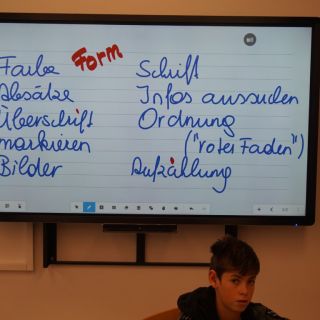 Form
Farbe
Absätze
Überschrift
markieren
Bilder
Schrift
Infos aussuchen
Ordnung
("roter Faden")
Aufzählung